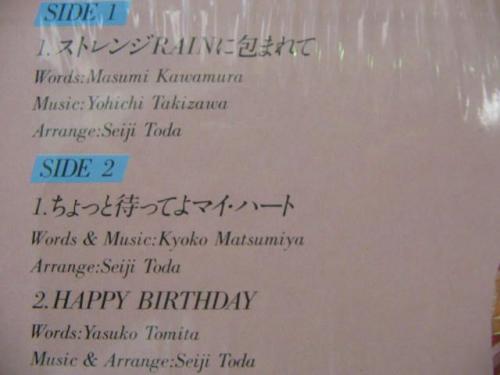 SIDE 1
1.ストレンジRAINに包まれて
Words:Masumi Kawamura
Music:Yohichi Takizawa
Arrange:Seiji Toda
SIDE 2
1.ちょっと待ってよマイ・ハート
Words & Music:Kyoko Matsumiya
Arrange:Seiji Toda
2.HAPPY BIRTHDAY
Words:Yasuko Tomita
Music & Arrange:Seiji Toda